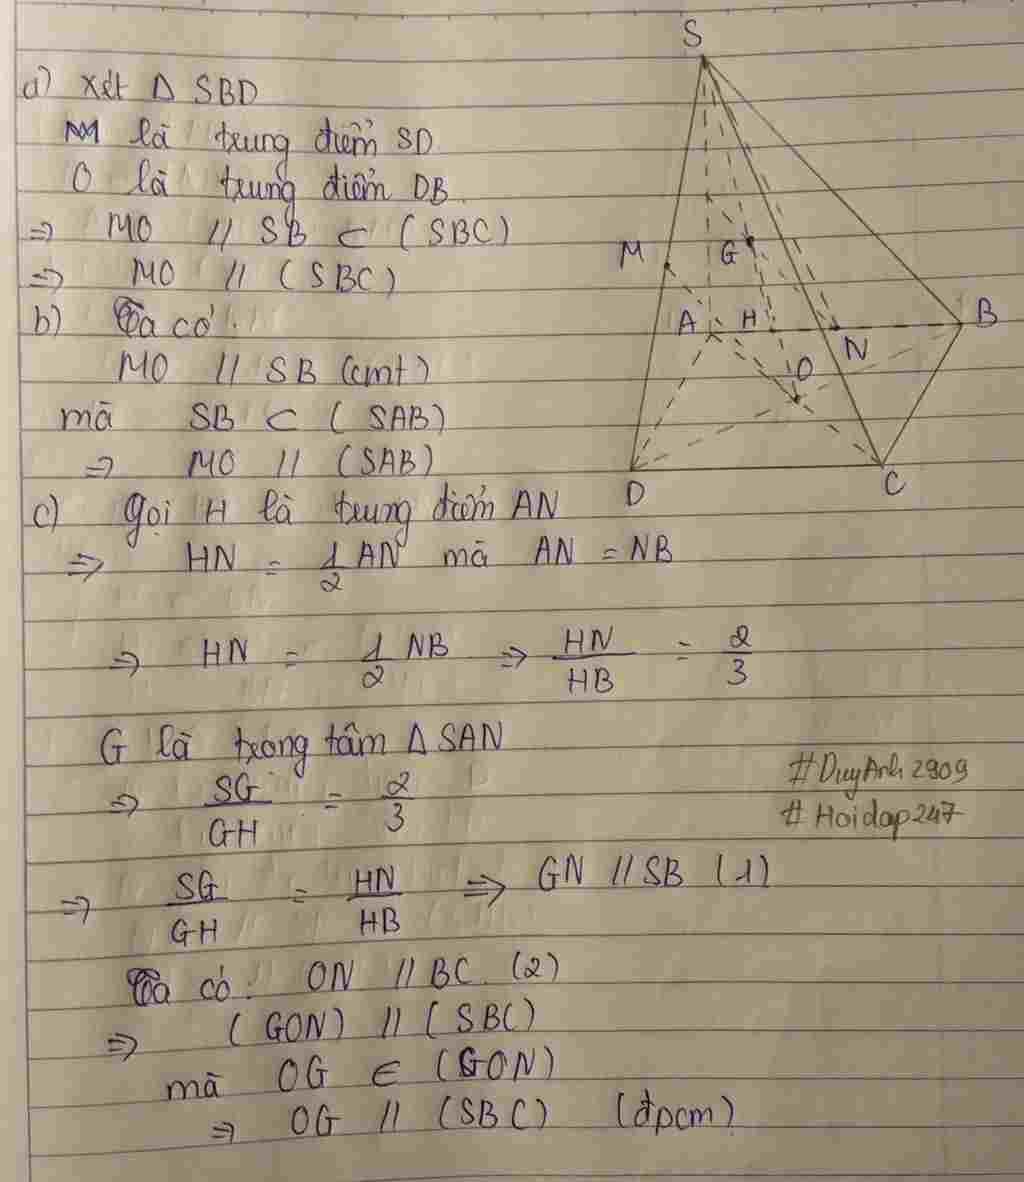 a) Xét Δ SBD
M là trung điểm SD
O là trung điểm DB.
⇒ MO // SB ⊂ (SBC)
⇒ MO // (SBC)
b) Ta có:
MO // SB (cmt)
mà SB ⊂ (SAB)
⇒ MO // (SAB)
c) Gọi H là trung điểm AN
⇒ HN = 1/2 AN mà AN = NB
⇒ HN = 1/2 NB ⇒ HN/HB = 2/3
G là trọng tâm Δ SAN
⇒ SG/GH = 2/3
⇒ SG/GH = HN/HB ⇒ GN // SB (1)
Ta có: ON // BC. (2)
⇒ (GON) // (SBC)
mà OG ∈ (GON)
⇒ OG // (SBC) (đpcm)
S
M
G
A
H
B
N
O
D
C
#DuyAnh2909
#Hoidap247